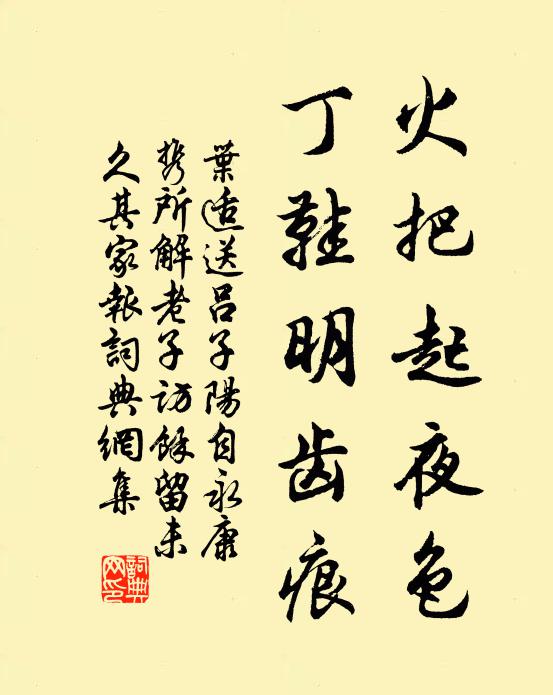 火把起夜色
丁鞋明齿痕
葉适送吕子陽自永康
携所解老子访餘留未
久其家報詞典網集
詞典网印